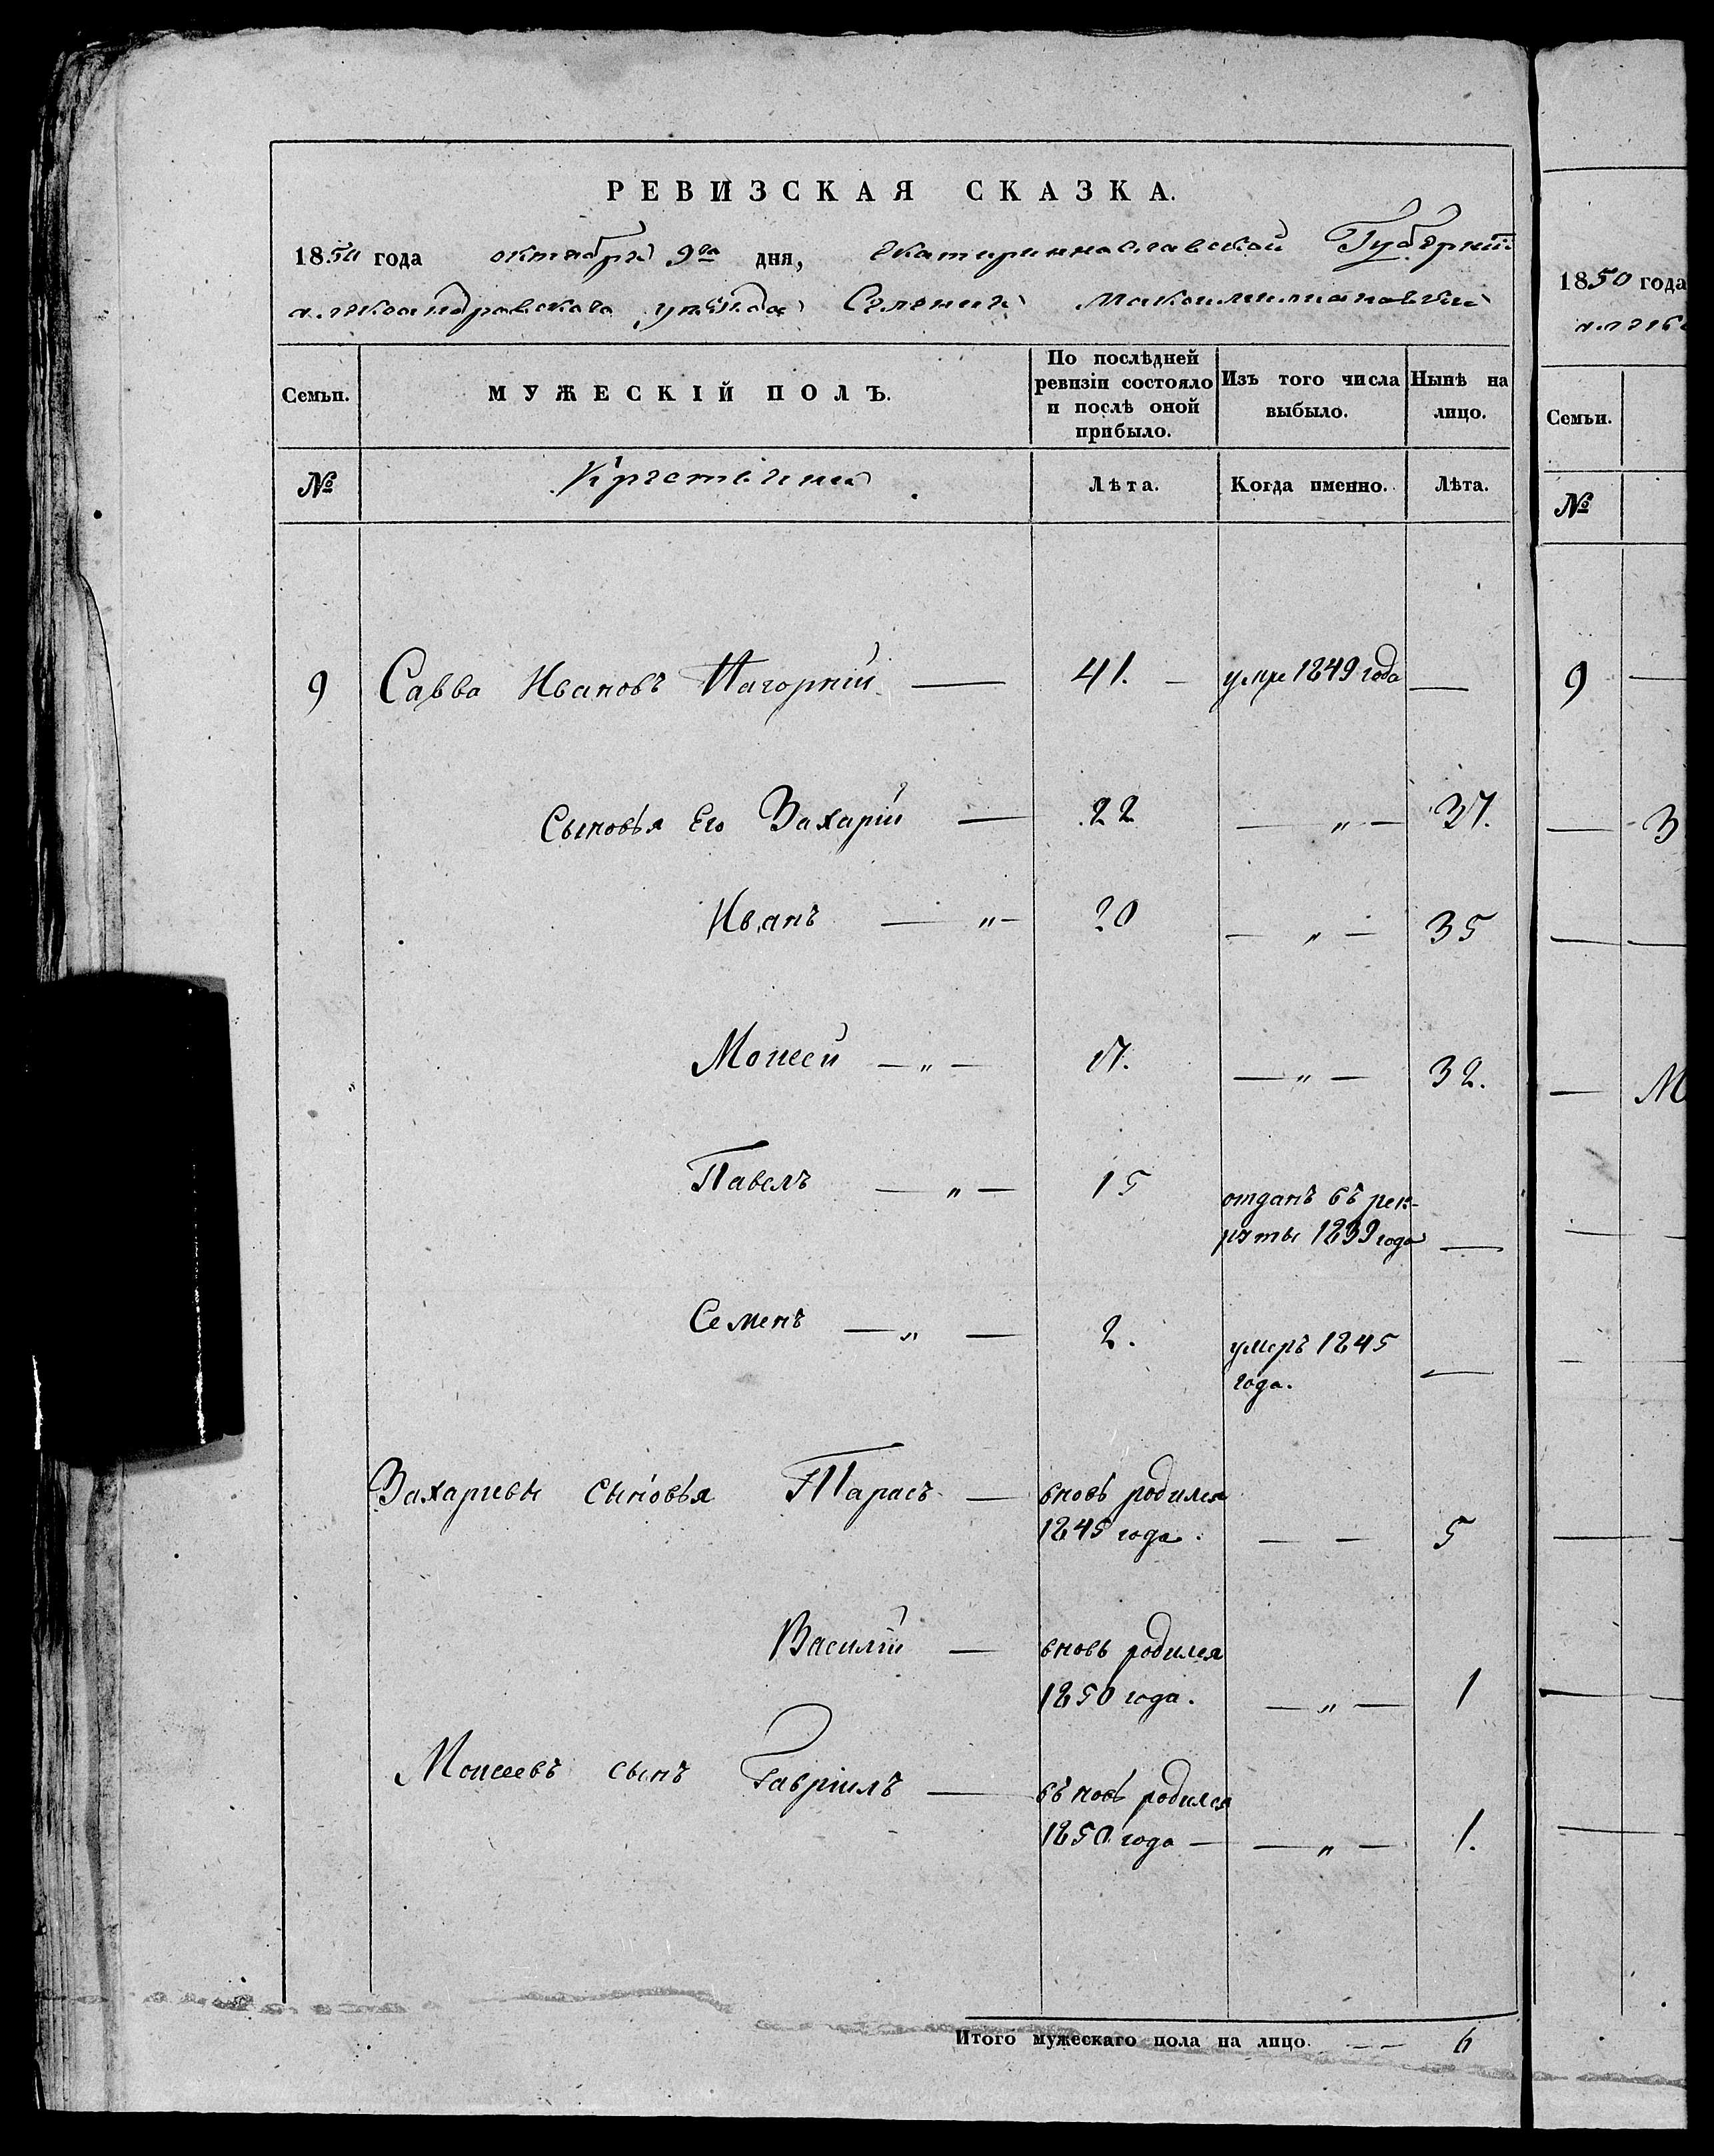 РЕВИЗСКАЯ СКАЗКА.
1850 года октября 9го дня, Екатеринославской Губерніи
Александровскаго уѣзда Селенія Максимилиановки
Семьи. МУЖЕСКІЙ ПОЛЪ. По послѣдней ревизіи состояло и послѣ оной прибыло. Изъ того числа выбыло. Нынѣ на лицо.
№ Крестьяне Лѣта. Когда именно. Лѣта.
9 Савва Ивановъ Нагорній — 41. — умре 1849 года —
Сыновья Его Захарій — 22 — „ — 37.
Иванъ — „ — 20 — „ — 35
Моисей — „ — 17. — „ — 32.
Павелъ — „ — 15 отданъ въ рек-
руты 1839 года —
Семенъ — „ — 2. умеръ 1845
года. —
Захаріевы сыновья Тарасъ — вновь родился
1845 года. — — 5
Василій — вновь родился
1850 года. — „ — 1
Моисеевъ сынъ Гавріилъ — въновь родился
1850 года — — „ — 1.
Итого мужескаго пола на лицо. — — 6
1850 года
Семьи.
№
9 —
— З
— —
— М